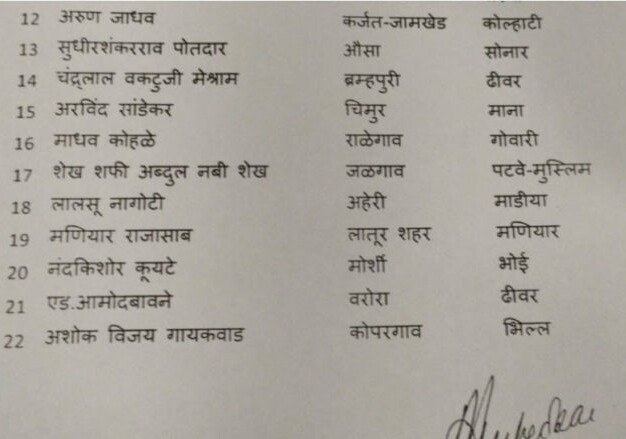 12 अरुण जाधव कर्जत-जामखेड कोल्हाटी
13 सुधीरशंकरराव पोतदार औसा सोनार
14 चंद्र्लाल वकटुजी मेश्राम ब्रम्हपुरी ढीवर
15 अरविंद सांडेकर चिमुर माना
16 माधव कोहळे राळेगाव गोवारी
17 शेख शफी अब्दुल नबी शेख जळगाव पटवे-मुस्लिम
18 लालसू नागोटी अहेरी माडीया
19 मणियार राजासाब लातूर शहर मणियार
20 नंदकिशोर कूयटे मोर्शी भोई
21 एड.आमोदबावने वरोरा ढीवर
22 अशोक विजय गायकवाड कोपरगाव भिल्ल